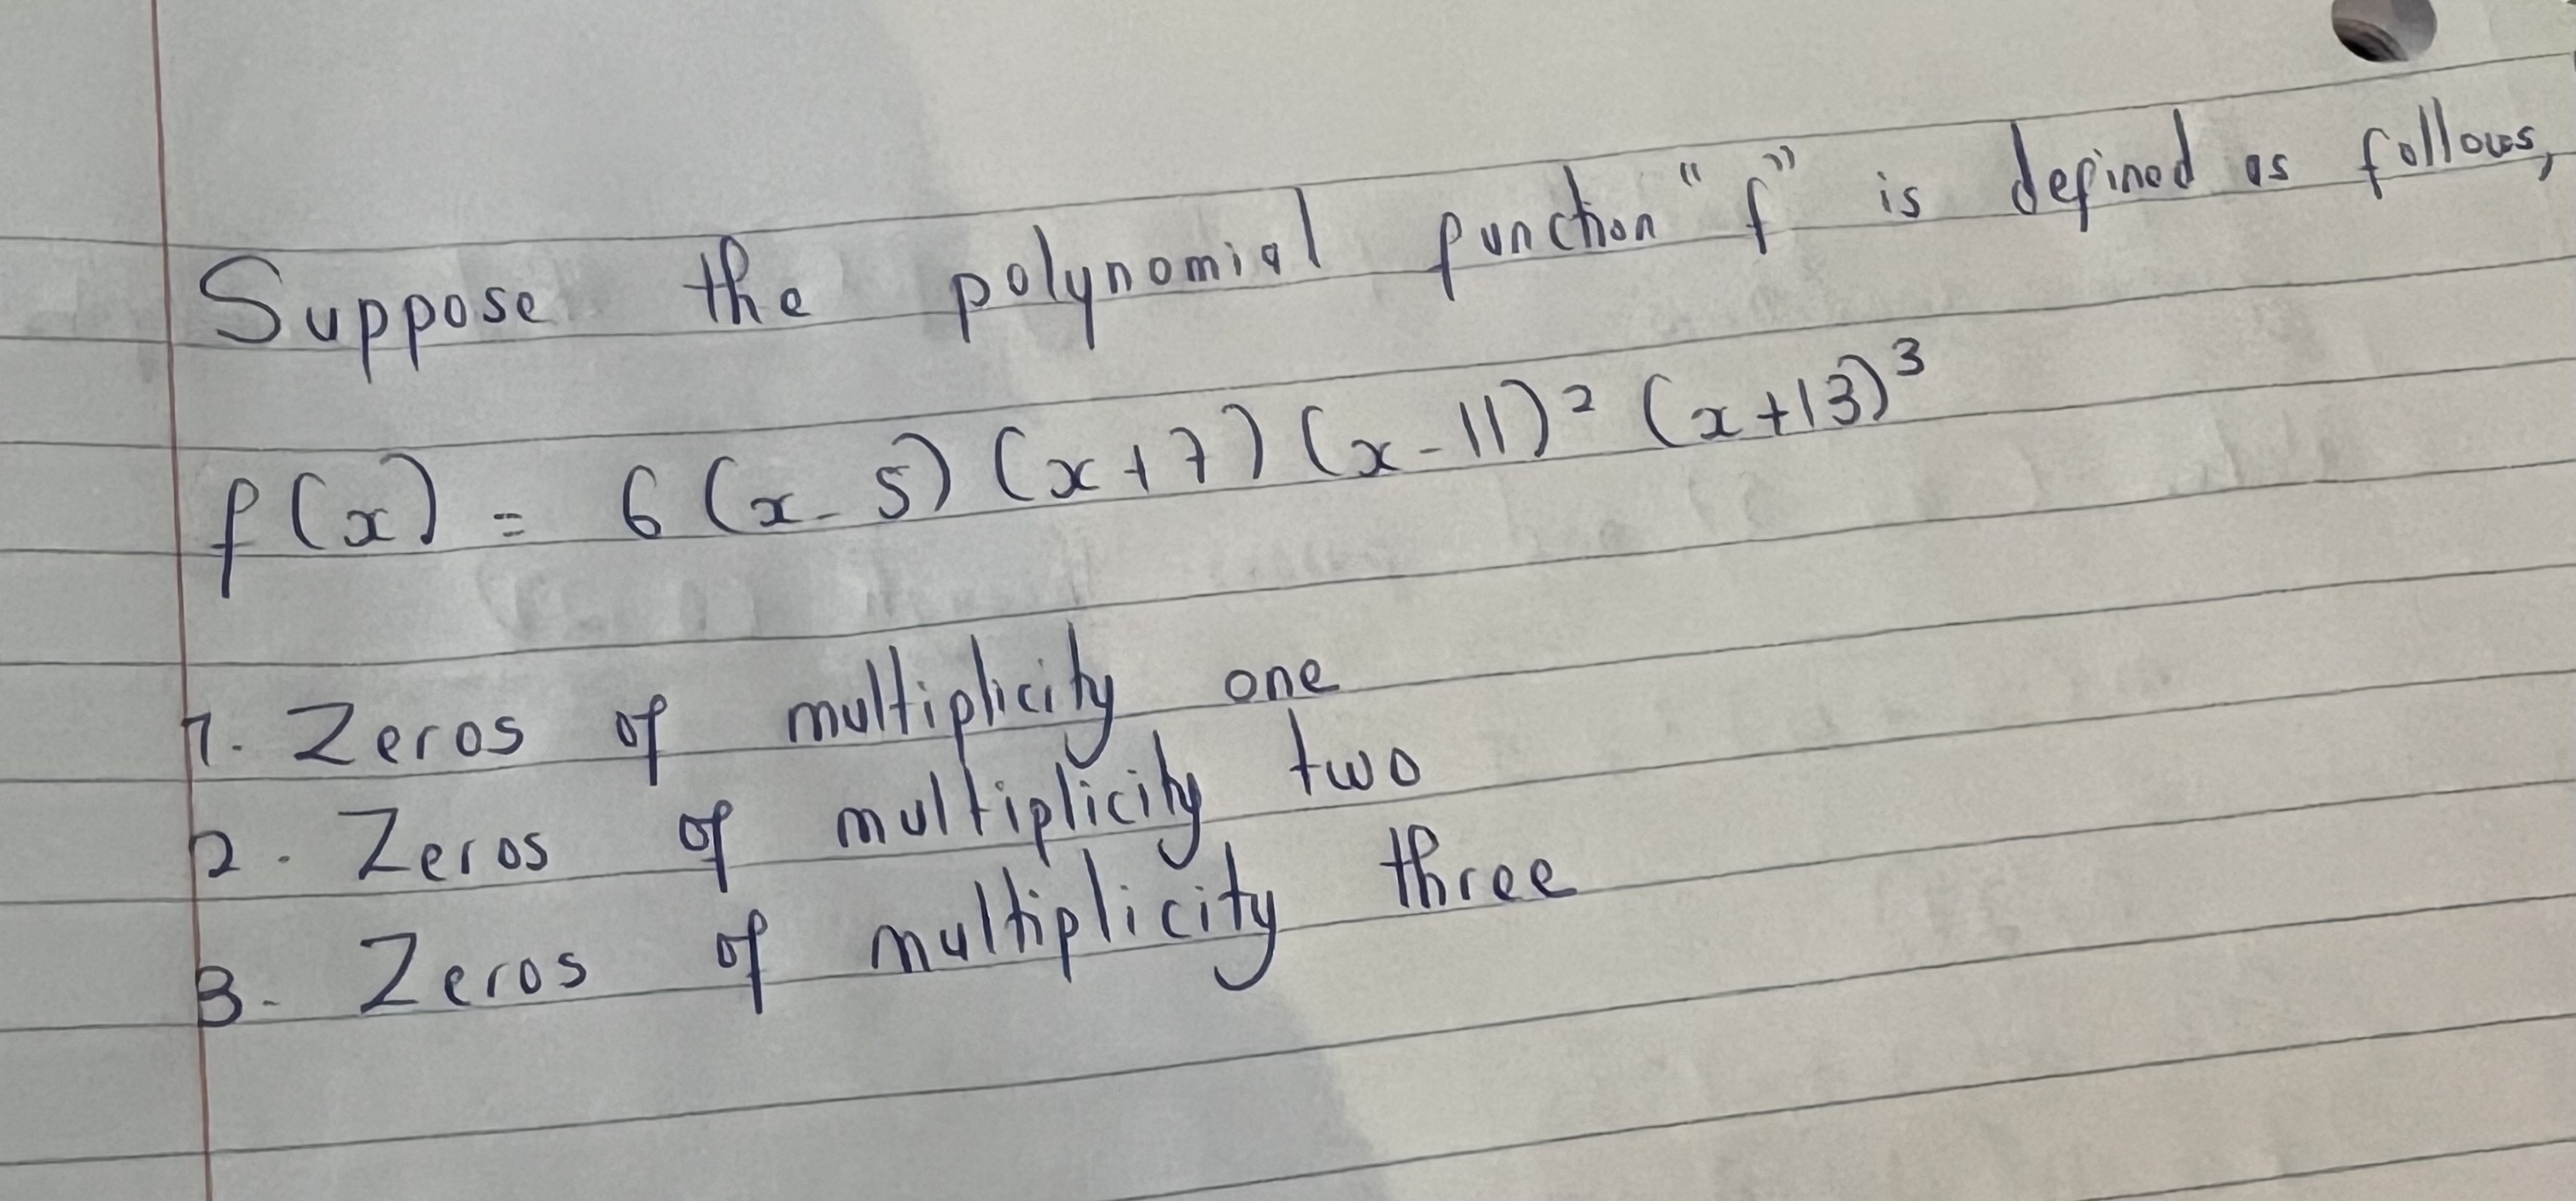 Suppose the polynomial function "f" is defined as follows,
f(x) = 6(x-5)(x+7)(x-11)² (x+13)³
1. Zeros of multiplicity one
2. Zeros of multiplicity two
3. Zeros of multiplicity three